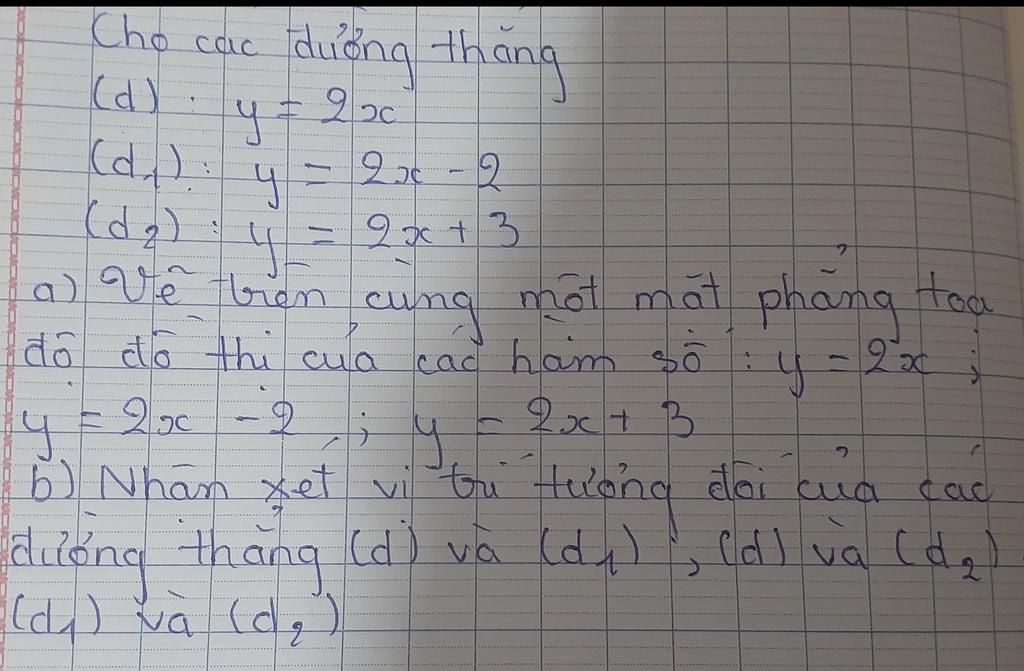 Cho các đường thẳng
(d): y = 2x
(d₁): y = 2x - 2
(d₂): y = 2x + 3
a) Vẽ trên cùng một một phẳng toạ
độ đồ thị của các hàm số: y = 2x;
y = 2x - 2; y = 2x + 3
b) Nhận xét vị trí tương đối của các
đường thẳng (d) và (d₁), (d) và (d₂)
(d₁) và (d₂)